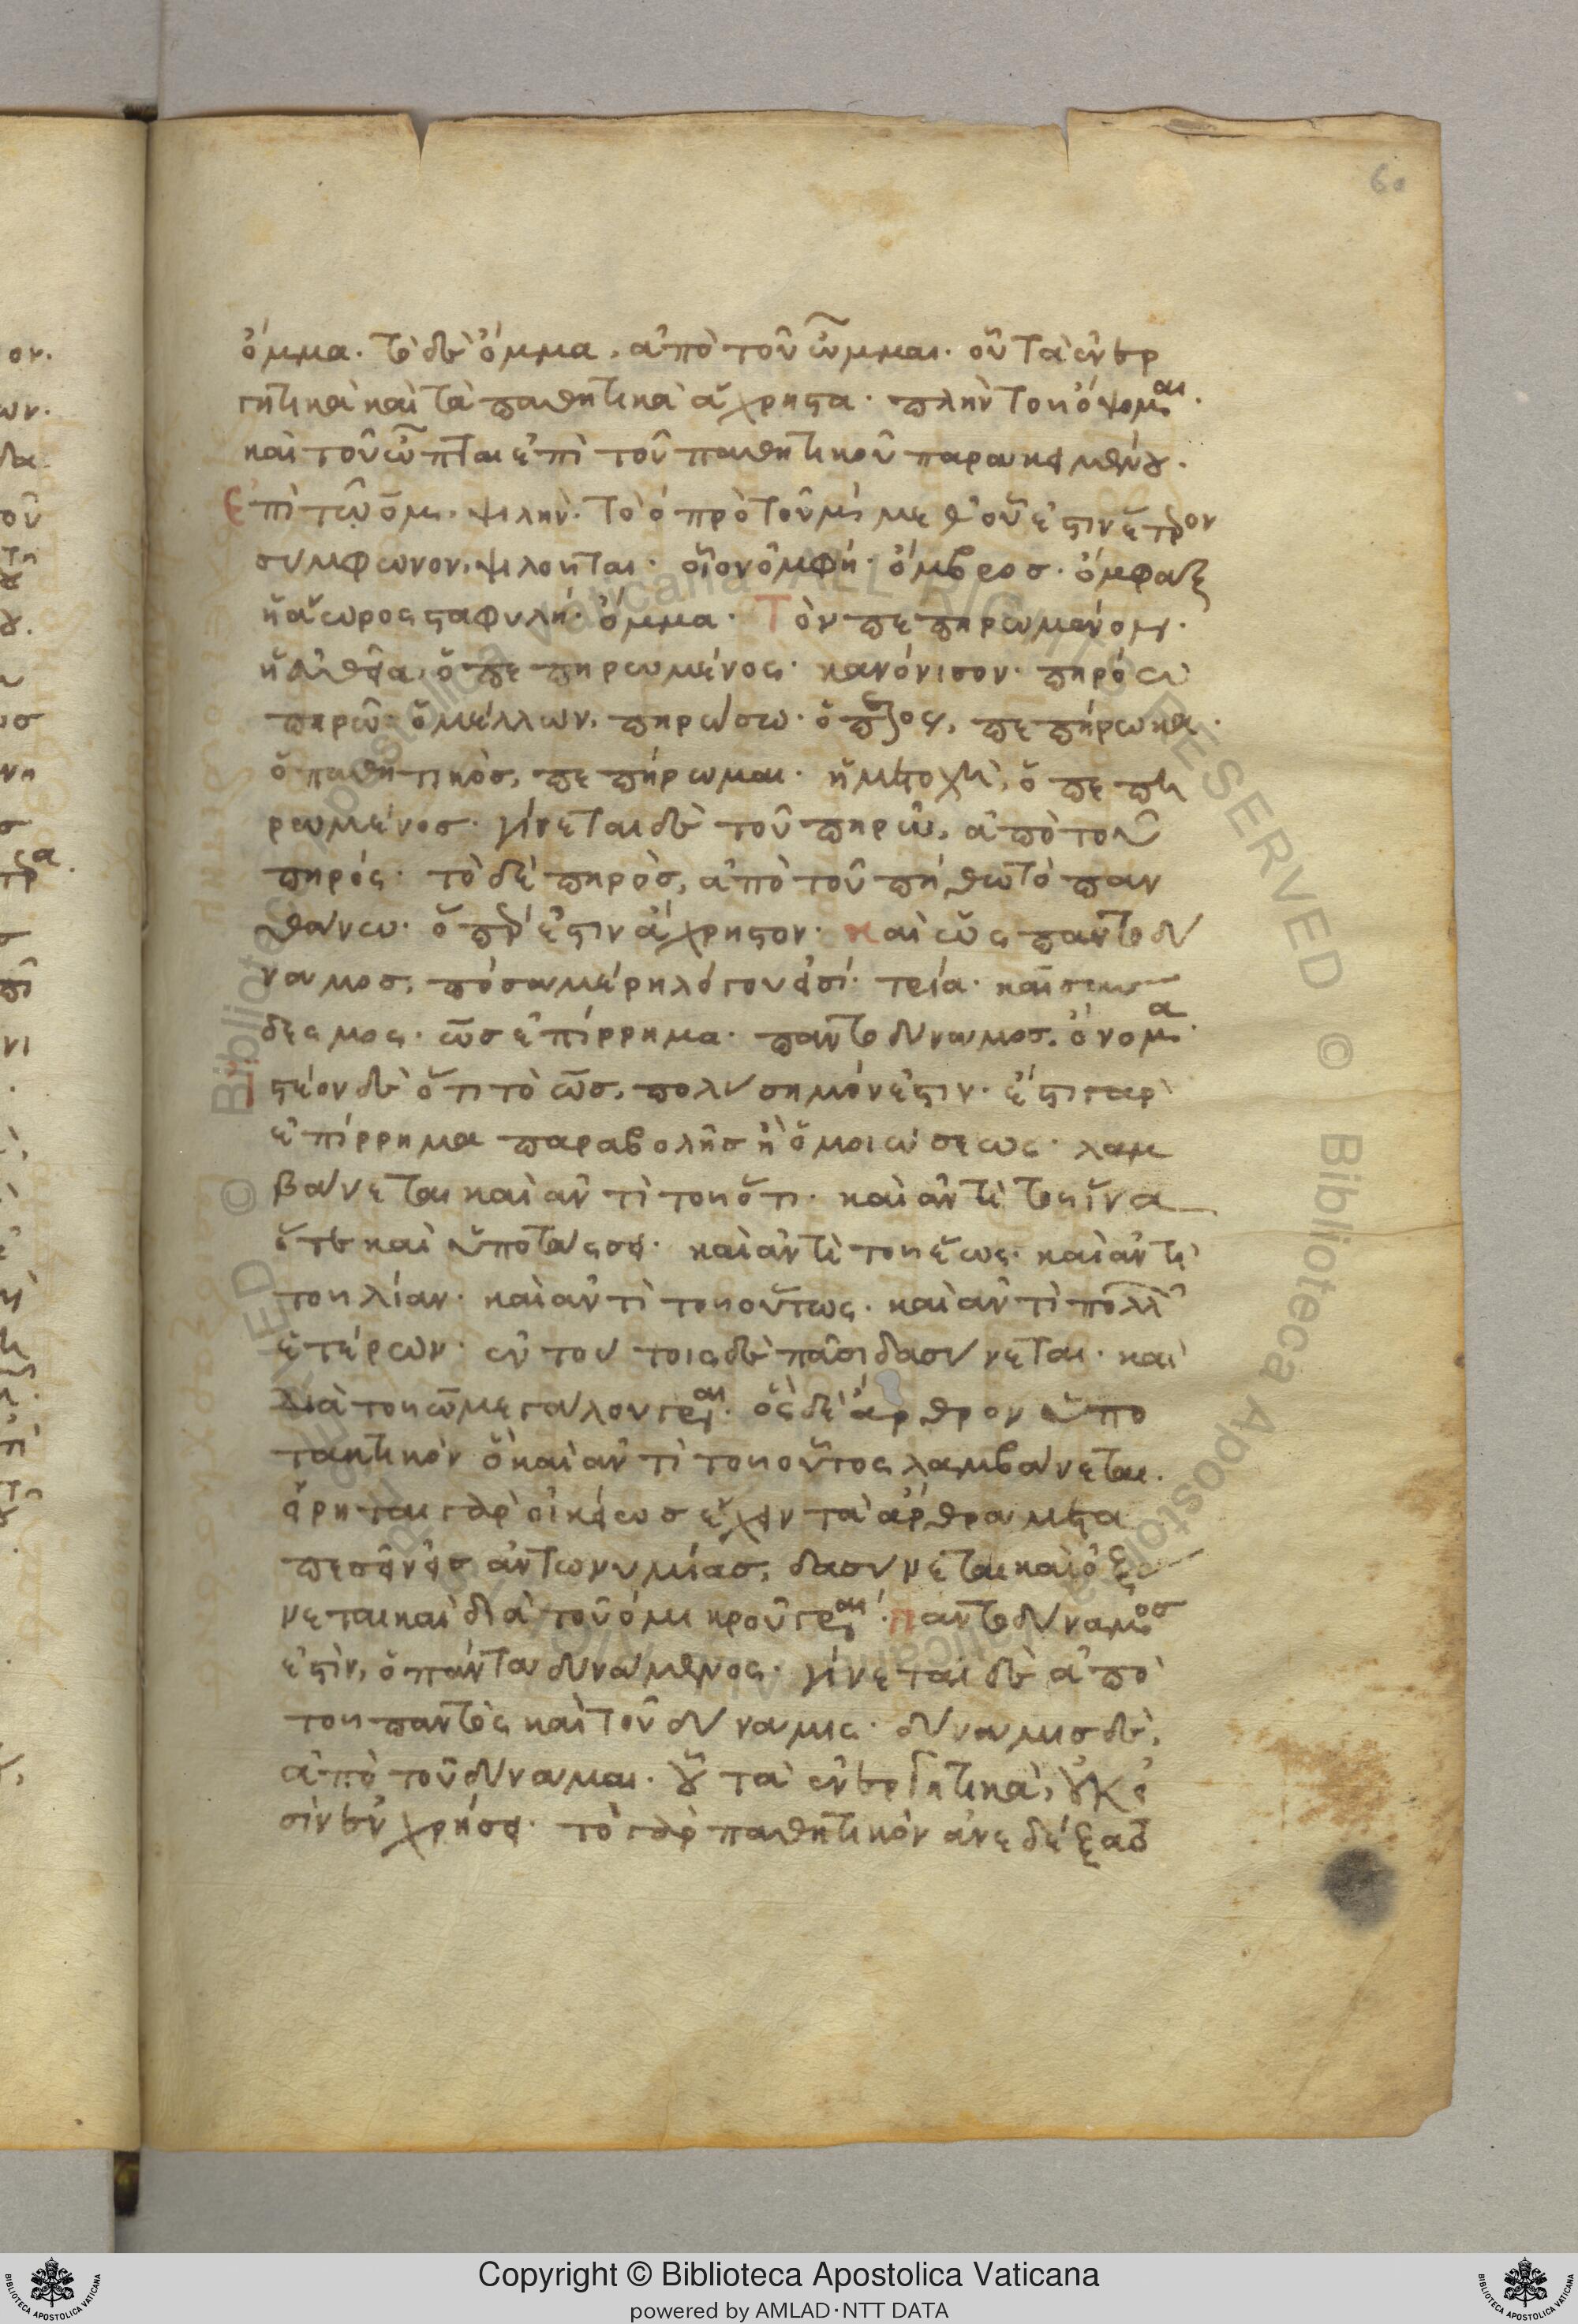 60
ὄμμα. τὸ δὲ ὄμμα, ἀπὸ τοῦ ὦμμαι. οὗ τὰ ἐνερ
γητικὰ καὶ τὰ παθητικὰ ἄχρηστα. πλὴν τοῦ ὄψομαι.
καὶ τοῦ ὦπται ἐπὶ τοῦ παθητικοῦ παρακειμένου.
Ἐπὶ τῷ ὄμ. ψιλήν. τὸ ο πρὸ τοῦ μ μεθ' οὗ ἐστιν ἕτερον
σύμφωνον, ψιλοῦται. οἷον ὀμφή. ὄμβρος. ὄμφαξ
ἡ ἄωρος σταφυλή. ὄμμα. Τὸν πεπηρωμένον.
ἡ εὐθεῖα, ὁ πεπηρωμένος. κανόνισον. πηρόω
πηρῶ. ὁ μέλλων, πηρώσω. ὁ παρακείμενος, πεπήρωκα.
ὁ παθητικὸς, πεπήρωμαι. ἡ μετοχὴ, ὁ πεπη
ρωμένος. γίνεται δὲ τοῦ πηρῶ, ἀπὸ τοῦ
πηρός. τὸ δὲ πηρὸς, ἀπὸ τοῦ πήθω τὸ παν
θάνω. ὅπερ ἐστιν ἄχρηστον. καὶ ὡς παντοδύ
ναμος, πόσα μέρη λόγου εἰσί. τρία. καὶ συν
δεσμος. ὡς ἐπίρρημα. παντοδύναμος, ὄνομα.
Ἰστέον δὲ ὅτι τὸ ὡς, πολυσημόν ἐστιν. ἔστι γαρ
ἐπίρρημα παραβολῆς ἢ ὁμοιώσεως. λαμ
βάνεται καὶ ἀντὶ τοῦ ὅτι. καὶ ἀντὶ τοῦ ἵνα
ὅτε καὶ ὑποτάσσει. καὶ ἀντὶ τοῦ ἕως. καὶ ἀντὶ
τοῦ λίαν. καὶ ἀντὶ τοῦ οὕτως. καὶ ἀντὶ πολλῶν
ἑτέρων. ἐν τούτοις δὲ πᾶσι δασύνεται. καὶ
διὰ τοῦ ω μεγάλου γράφεται. ὃς δὲ ἄρθρον ὑπο
τακτικὸν ὃ καὶ ἀντὶ τοῦ οὗτος λαμβάνεται.
εἴρηται γὰρ οἰκείως ἔχειν τὰ ἄρθρα μετα
πεσεῖν εἰς ἀντωνυμίας, δασύνεται καὶ ὀξύ
νεται καὶ διὰ τοῦ ο μικροῦ γράφεται. παντοδύναμος
ἐστὶν, ὁ πάντα δυνάμενος. γίνεται δὲ ἀπὸ
τοῦ παντὸς καὶ τοῦ δύναμις. δύναμις δὲ,
ἀπὸ τοῦ δύναμαι. οὗ τὰ ἐνεργητικὰ, οὐκ εἰ
σὶν ἐν χρήσει. τὸ γὰρ παθητικὸν ἀνεδέξατο
Copyright © Biblioteca Apostolica Vaticana
powered by AMLAD·NTT DATA